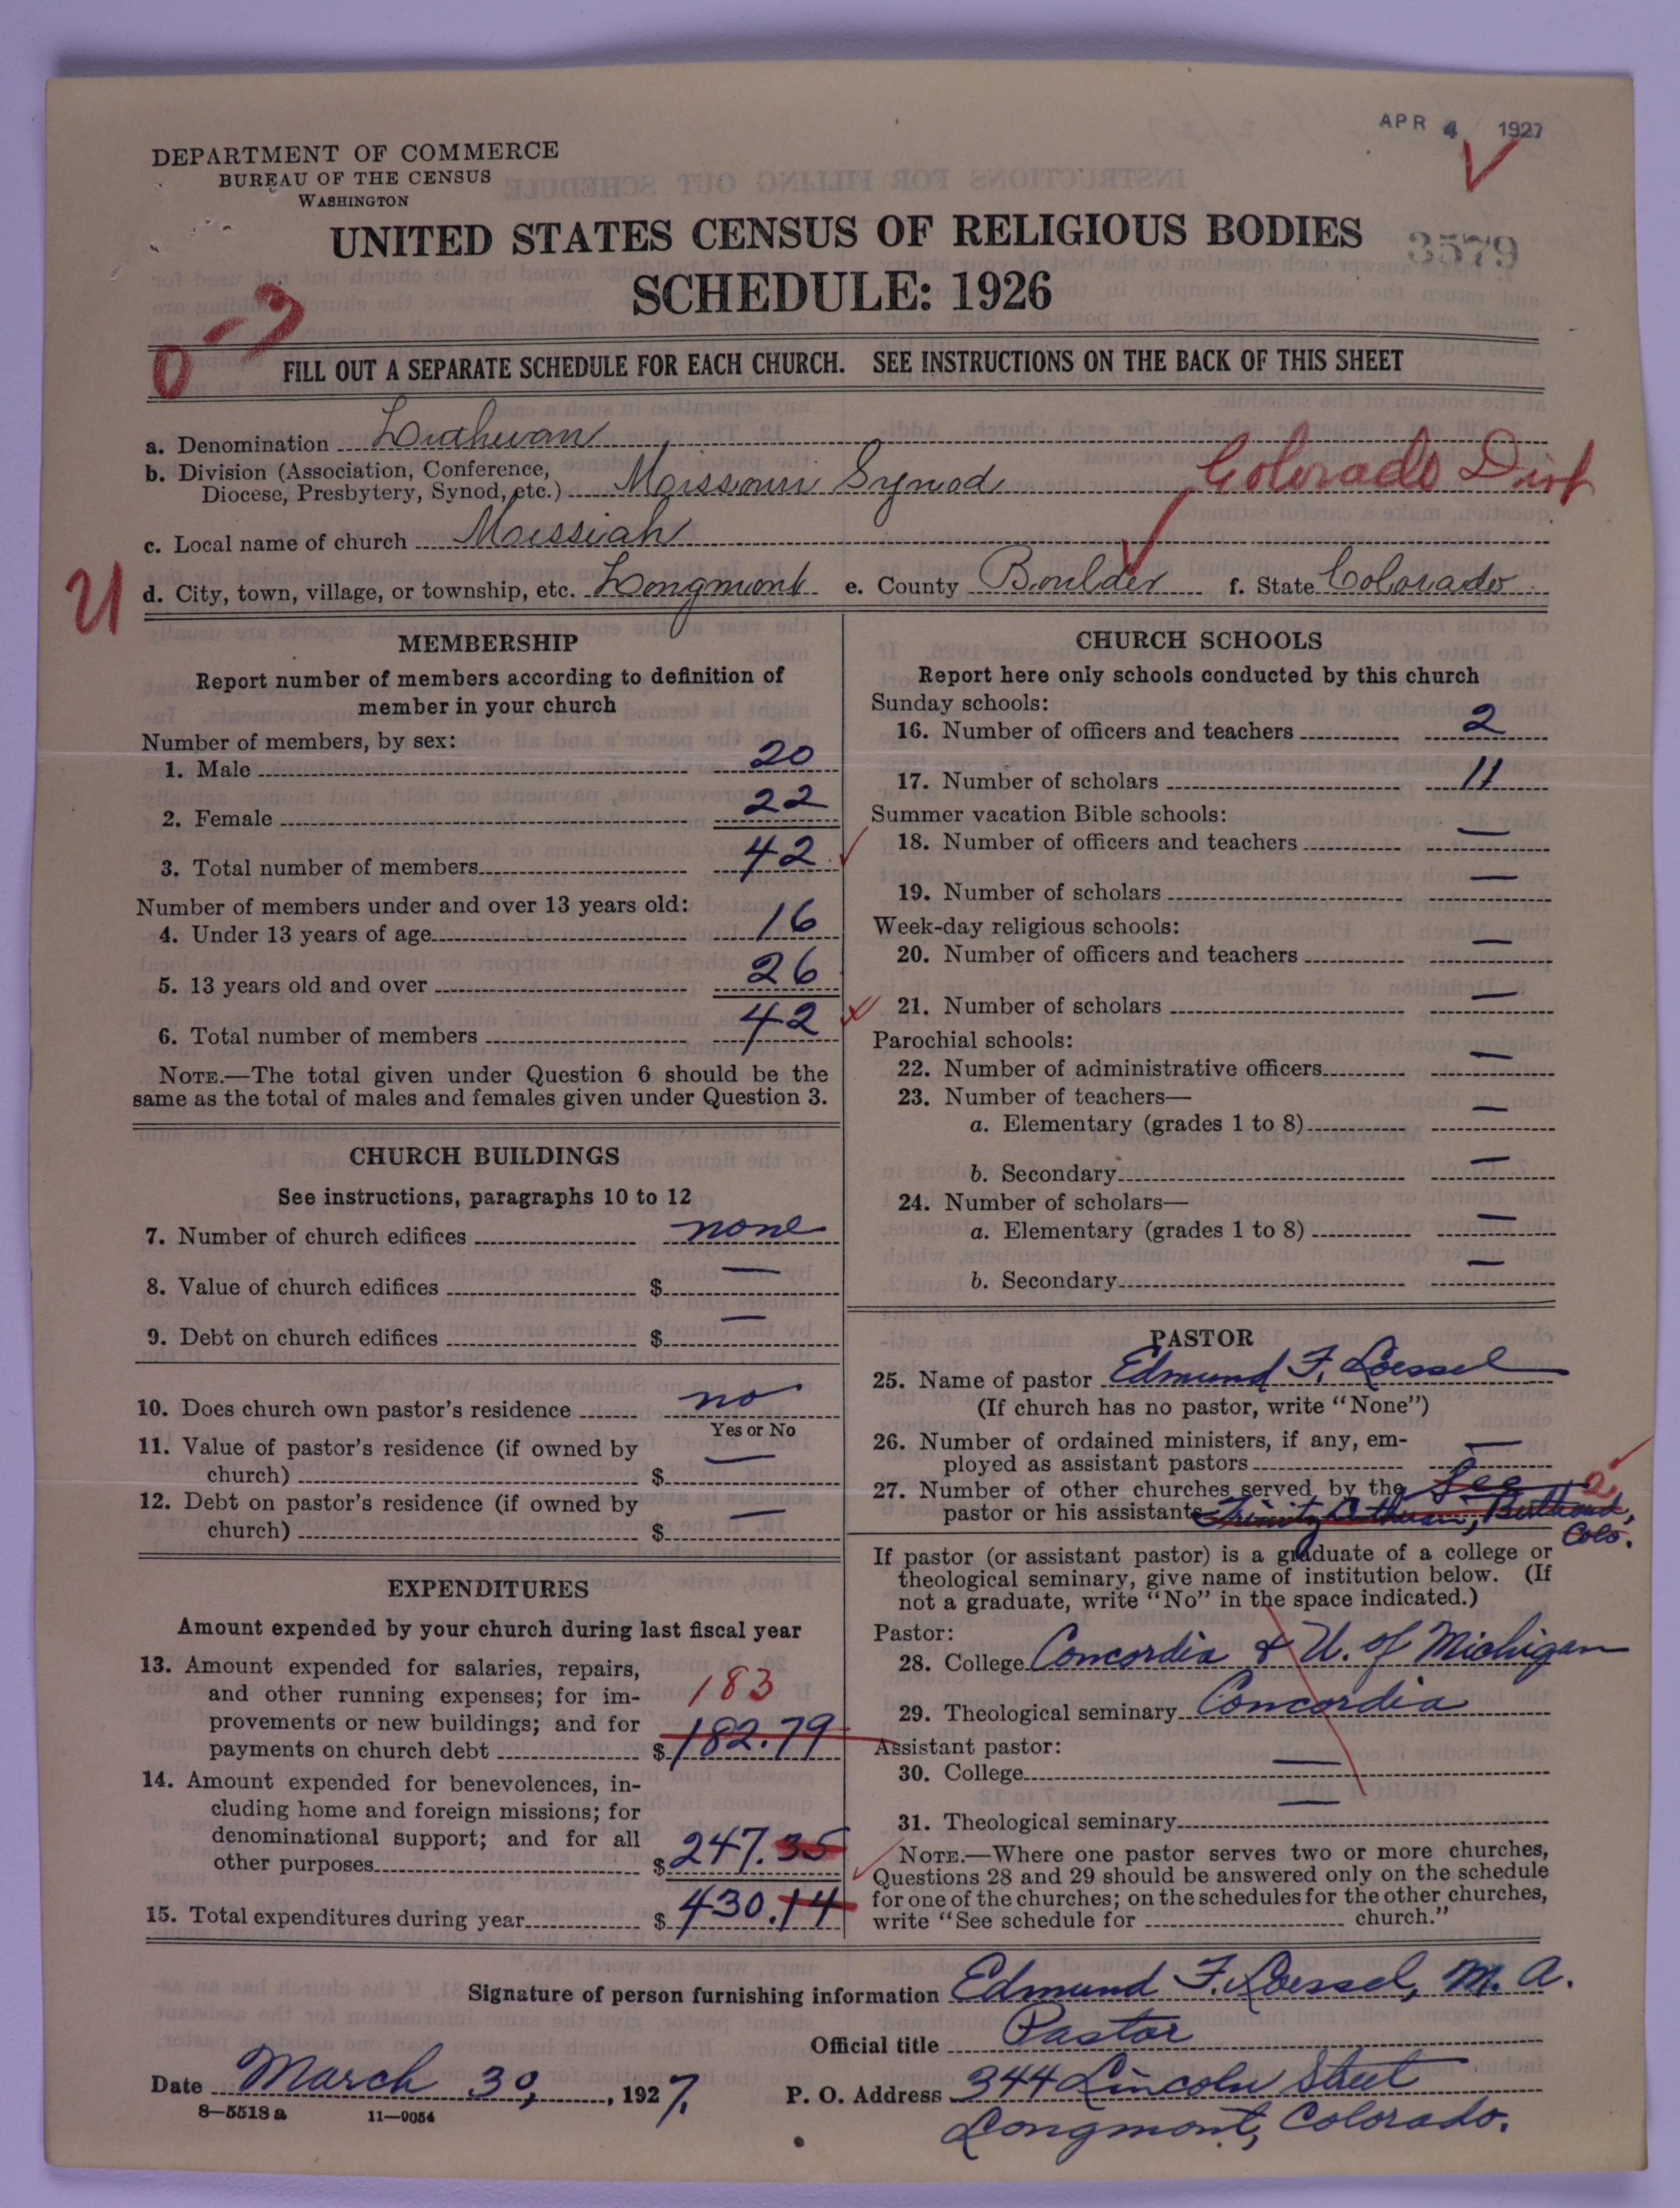 APR 4 1927
DEPARTMENT OF COMMERCE
BUREAU OF THE CENSUS
WASHINGTON
UNITED STATES CENSUS OF RELIGIOUS BODIES
3579
SCHEDULE: 1926
FILL OUT A SEPARATE SCHEDULE FOR EACH CHURCH. SEE INSTRUCTIONS ON THE BACK OF THIS SHEET
a. Denomination Lutheran
b. Division (Association, Conference,
Diocese, Presbytery, Synod, etc.) Missouri Synod Colorado Dist
c. Local name of church Messiah
d. City, town, village, or township, etc. Longmont e. County Boulder f. State Colorado
MEMBERSHIP
Report number of members according to definition of
member in your church
Number of members, by sex:
1. Male 20
2. Female 22
3. Total number of members 42
Number of members under and over 13 years old:
4. Under 13 years of age 16
5. 13 years old and over 26
6. Total number of members 42
NOTE.—The total given under Question 6 should be the
same as the total of males and females given under Question 3.
CHURCH BUILDINGS
See instructions, paragraphs 10 to 12
7. Number of church edifices none
8. Value of church edifices $ —
9. Debt on church edifices $ —
10. Does church own pastor's residence no
Yes or No
11. Value of pastor's residence (if owned by
church) $ —
12. Debt on pastor's residence (if owned by
church) $ —
EXPENDITURES
Amount expended by your church during last fiscal year
13. Amount expended for salaries, repairs,
and other running expenses; for im-
183
provements or new buildings; and for
payments on church debt $ 182.79
14. Amount expended for benevolences, in-
cluding home and foreign missions; for
denominational support; and for all
other purposes $ 247.35
15. Total expenditures during year $ 430.14
CHURCH SCHOOLS
Report here only schools conducted by this church
Sunday schools:
16. Number of officers and teachers 2
17. Number of scholars 11
Summer vacation Bible schools:
18. Number of officers and teachers —
19. Number of scholars —
Week-day religious schools:
20. Number of officers and teachers —
21. Number of scholars —
Parochial schools:
22. Number of administrative officers —
23. Number of teachers—
a. Elementary (grades 1 to 8) —
b. Secondary —
24. Number of scholars—
a. Elementary (grades 1 to 8) —
b. Secondary —
PASTOR
25. Name of pastor Edmund F. Loessel
(If church has no pastor, write "None")
26. Number of ordained ministers, if any, em-
ployed as assistant pastors —
27. Number of other churches served by the See 2
pastor or his assistants Trinity Lutheran, Berthoud,
Colo.
If pastor (or assistant pastor) is a graduate of a college or
theological seminary, give name of institution below. (If
not a graduate, write "No" in the space indicated.)
Pastor:
28. College Concordia & U. of Michigan
29. Theological seminary Concordia
Assistant pastor:
30. College —
31. Theological seminary —
NOTE.—Where one pastor serves two or more churches,
Questions 28 and 29 should be answered only on the schedule
for one of the churches; on the schedules for the other churches,
write "See schedule for church."
Signature of person furnishing information Edmund F. Loessel, M. A.
Official title Pastor
Date March 30, 1927. P. O. Address 344 Lincoln Street
8—5518 a 11—9054
Longmont, Colorado.